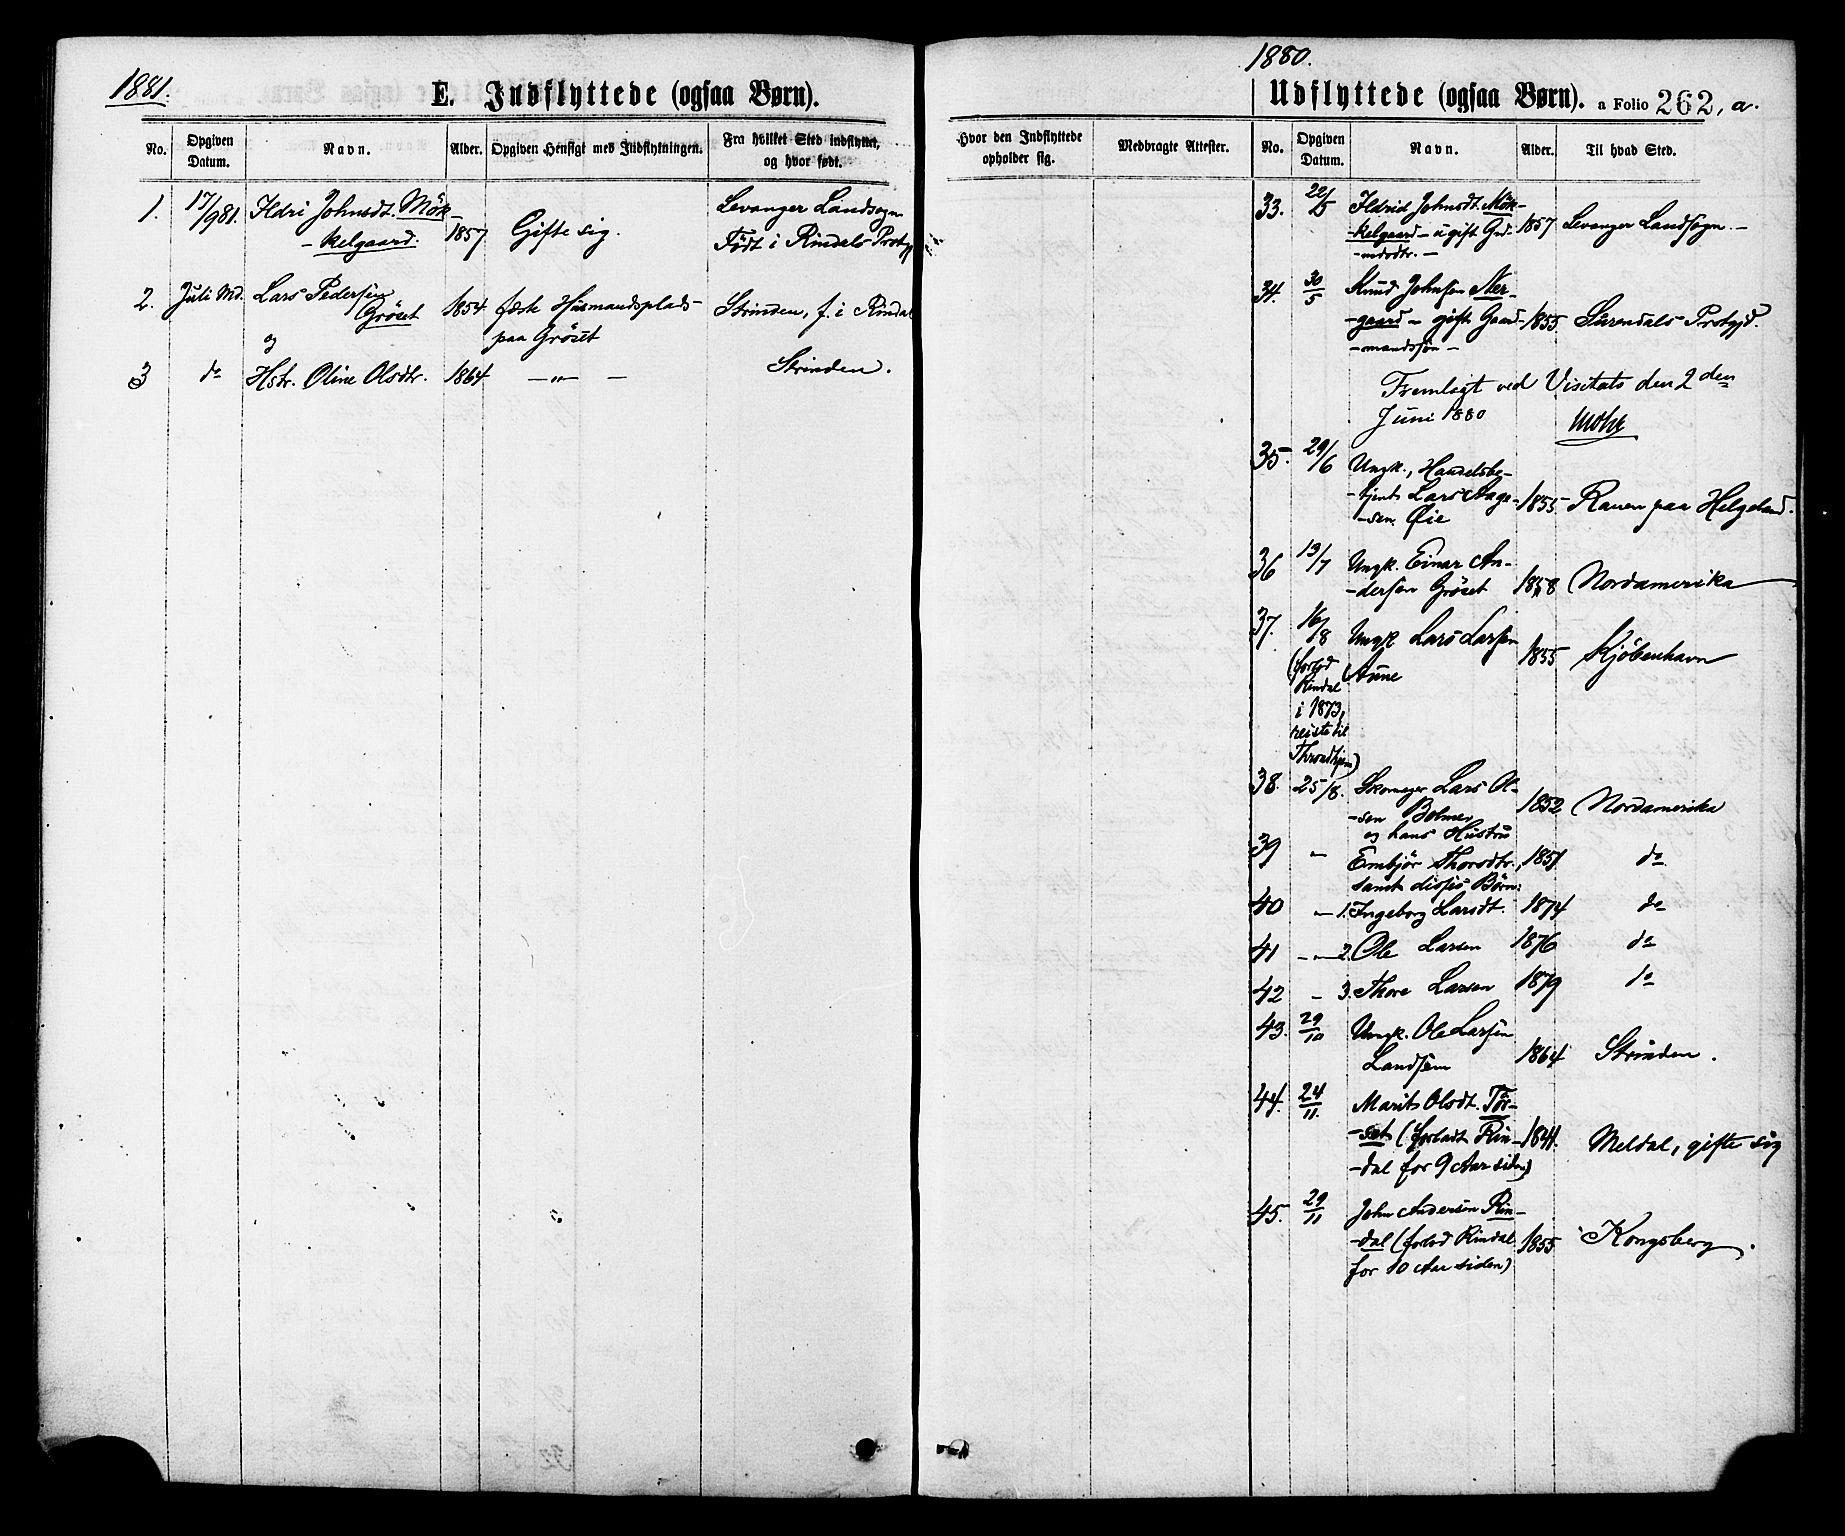 1881.
E. Indflyttede (ogsaa Børn).
No. Opgiven Datum. Navn. Alder. Opgiven Hensigt med Indflytningen. Fra hvilket Sted indflyttet, og hvor født.
1. 17/9 81. Ildri Johnsdt. Mök- Levanger Landsogn
- kelgaard. 1857 Gifte sig. Født i Rindals Prstgj
2. Juli Md. Lars Pedersen
Gröset 1854 fæste Husmandsplads Strinden, f. i Rindal
og paa Gröset
3 do Hstr. Oline Olsdtr. 1864 — „ — Strinden.
1880.
Udflyttede (ogsaa Børn). a Folio 262, a.
Hvor den Indflyttede opholder sig. Medbragte Attester. No. Opgiven Datum. Navn. Alder. Til hvad Sted.
33. 22/5 Ildrid Johnsdt. Mök-
kelgaard - ugift Grd- 1857 Levanger Landsogn. -
-mdsdtr. -
34. 30/5 Knud Johnsen Ner-
-gaard - gift Gaard- 1855 Surendals Prstgjd.
-mandssön -
Fremlagt ved Visitats den 2den
Juni 1880
35. 29/6 Ungk., Handelsbe-
-tjent Lars Aage- 1855 Ranen paa Helgeland.
-sen Øie
36 13/7 Ungk. Einar An-
-dersen Gröset 1858 Nordamerika
37. 16/8 Ungk. Lars Larsen
(forlod Aune 1855 Kjöbenhavn
Rindal
i 1873,
reiste til
Throndhjem)
38. 25/8. Skomager Lars Ol-
-sen Bolme, 1852 Nordamerika
og hans Hustru
39 " Embjör Thorsdtr. 1851 do
samt disses Børn:
40 " 1. Ingeborg Larsdt. 1874 do
41 - " - 2. Ole Larsen 1876 do
42 - 3. Thore Larsen 1879 do
43. 29/10 Ungk. Ole Larsen
Landsem 1864 Strinden.
44. 24/11. Marit Olsdt. Tör-
-set (forladt Rin- 1841. Meldal, gifte sig
-dal for 9 Aar siden)
45. 29/11 John Andersen Rin-
-dal (forlod Rindal 1855 Kongsberg.
for 10 Aar siden)